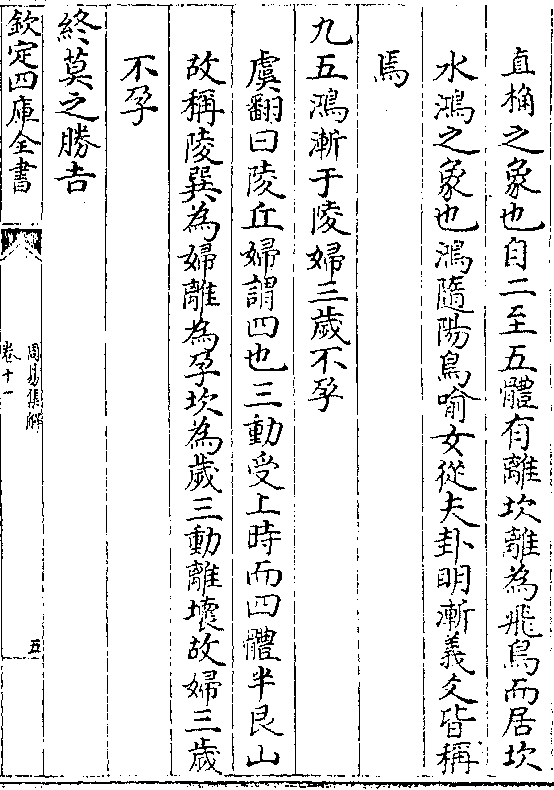 直桷之象也自二至五體有離坎離為飛鳥而居坎
水鴻之象也鴻隨陽鳥喻女從夫卦明漸義爻皆稱
焉
九五鴻漸于陵婦三歲不孕
虞翻曰陵丘婦謂四也三動受上時而四體半艮山
故稱陵巽為婦離為孕坎為歲三動離壞故婦三歲
不孕
終莫之勝吉
欽定四庫全書
周易集解
卷十一
五